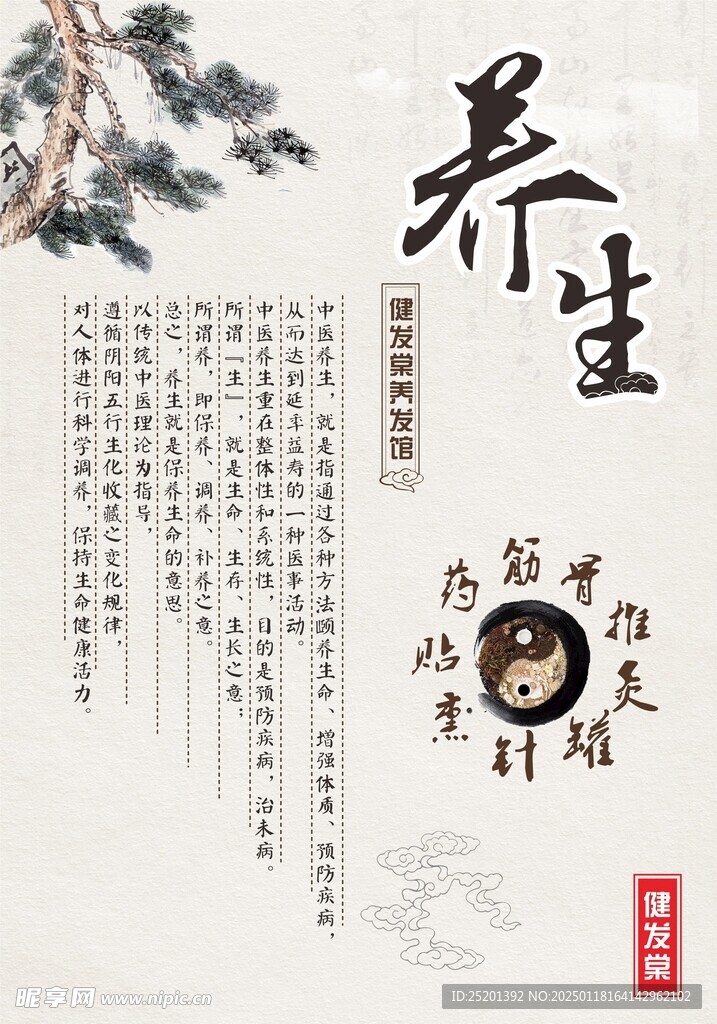 养生
健发棠养发馆
中医养生，就是指通过各种方法颐养生命、增强体质、预防疾病，
从而达到延年益寿的一种医事活动。
中医养生重在整体性和系统性，目的是预防疾病，治未病。
所谓『生』，就是生命、生存、生长之意；
所谓养，即保养、调养、补养之意。
总之，养生就是保养生命的意思。
以传统中医理论为指导，
遵循阴阳五行生化收藏之变化规律，
对人体进行科学调养，保持生命健康活力。
筋
骨
推
灸
罐
针
熏
贴
药
健发棠
昵享网 www.nipic.cn
ID:25201392 NO:20250118164142962102